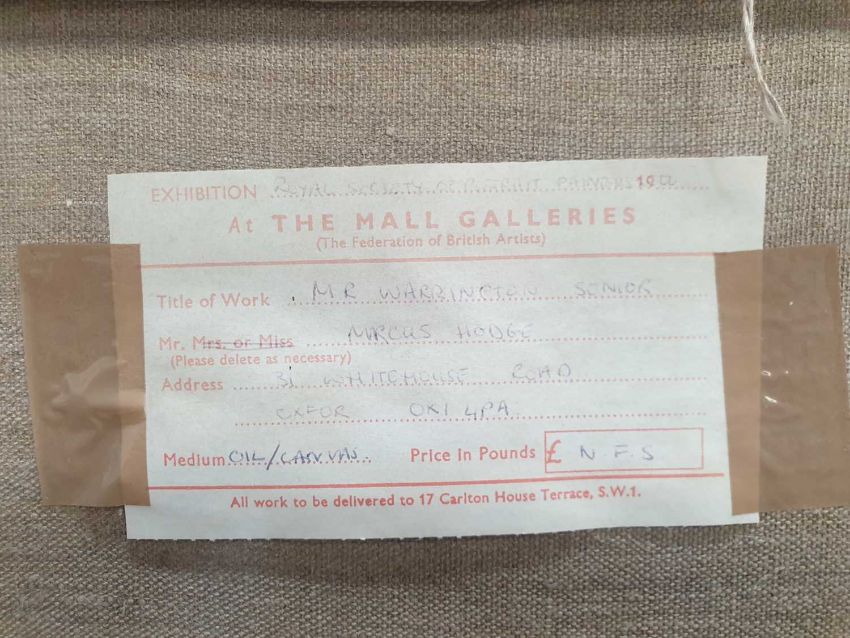 EXHIBITION ROYAL SOCIETY OF PORTRAIT PAINTERS 19
At THE MALL GALLERIES
(The Federation of British Artists)
Title of Work MR WARRINGTON SENIOR
Mr. Mrs. or Miss MARCUS HODGE
(Please delete as necessary)
Address 31 WHITEHOUSE ROAD
OXFOR OX1 4PA
Medium OIL/CANVAS. Price in Pounds £ N.F.S
All work to be delivered to 17 Carlton House Terrace, S.W.1.